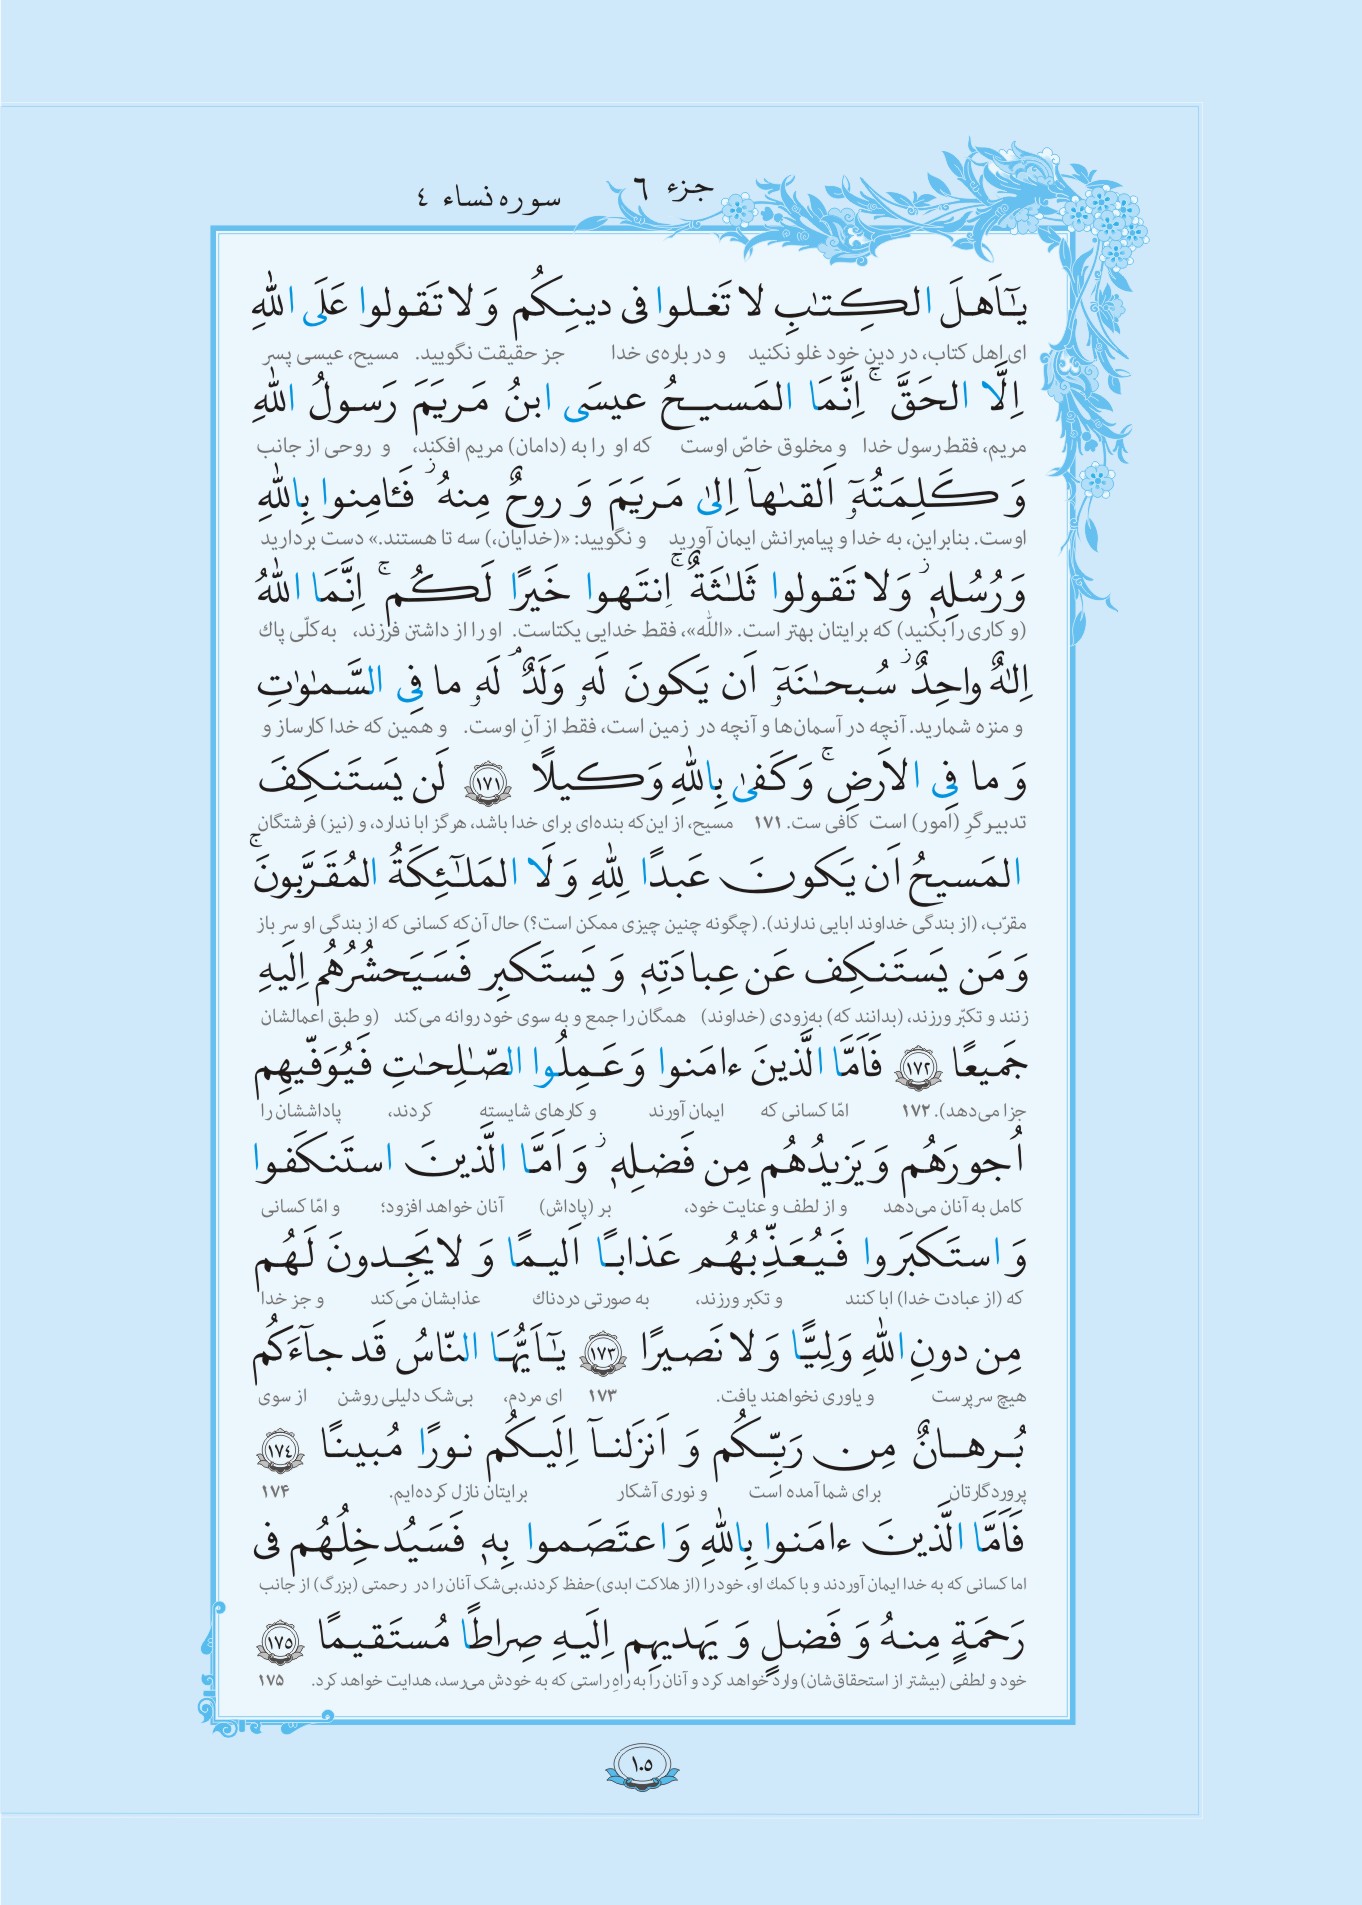 جزء ٦
سوره نساء ٤
يـٰٓاَهلَ الكِتـٰبِ لا تَغلوا فى دينِكُم وَ لا تَقولوا عَلَى اللّٰهِ
ای اهل کتاب، در دین خود غلو نکنید و در باره‌ی خدا جز حقیقت نگویید. مسیح، عیسی پسر
اِلَّا الحَقَّ ۚ اِنَّمَا المَسيحُ عيسَى ابنُ مَريَمَ رَسولُ اللّٰهِ
مریم، فقط رسول خدا و مخلوق خاصّ اوست که او را به (دامان) مریم افکند، و روحی از جانب
وَ كَلِمَتُهُۥٓ اَلقىٰهآ اِلىٰ مَريَمَ وَ روحٌ مِنهُ ۖ فَـٔامِنوا بِاللّٰهِ
اوست. بنابراین، به خدا و پیامبرانش ایمان آورید و نگویید: «(خدایان،) سه تا هستند.» دست بردارید
وَ رُسُلِهٖ ۖ وَ لا تَقولوا ثَلـٰثَةٌ ۚ اِنتَهوا خَيرًا لَكُم ۚ اِنَّمَا اللّٰهُ
(و کاری را بکنید) که برایتان بهتر است. «اللّٰه»، فقط خدایی یکتاست. او را از داشتن فرزند، به‌کلّی پاك
اِلـٰهٌ واحِدٌ ۖ سُبحـٰنَهُۥٓ اَن يَكونَ لَهُۥ وَلَدٌ ۘ لَهُۥ ما فِى السَّمـٰوٰتِ
و منزه شمارید. آنچه در آسمان‌ها و آنچه در زمین است، فقط از آنِ اوست. و همین که خدا کارساز و
وَ ما فِى الاَرضِ ۚ وَ كَفىٰ بِاللّٰهِ وَكيلًا ١٧١ لَن يَستَنكِفَ
تدبیرگرِ (امور) است کافی ست. ۱۷۱ مسیح، از این‌که بنده‌ای برای خدا باشد، هرگز ابا ندارد، و (نیز) فرشتگان
المَسيحُ اَن يَكونَ عَبدًا لِلّٰهِ وَ لَا المَلـٰٓئِكَةُ المُقَرَّبونَ ۚ
مقرّب، (از بندگی خداوند ابایی ندارند). (چگونه چنین چیزی ممکن است؟) حال آن‌که کسانی که از بندگی او سر باز
وَ مَن يَستَنكِف عَن عِبادَتِهٖ وَ يَستَكبِر فَسَيَحشُرُهُم اِلَيهِ
زنند و تکبّر ورزند، (بدانند که) به‌زودی (خداوند) همگان را جمع و به سوی خود روانه می‌کند (و طبق اعمالشان
جَميعًا ١٧٢ فَاَمَّا الَّذينَ ءامَنوا وَ عَمِلُوا الصّـٰلِحـٰتِ فَيُوَفّيهِم
جزا می‌دهد). ۱۷۲ امّا کسانی که ایمان آورند و کارهای شایسته کردند، پاداششان را
اُجورَهُم وَ يَزيدُهُم مِن فَضلِهٖ ۖ وَ اَمَّا الَّذينَ استَنكَفوا
کامل به آنان می‌دهد و از لطف و عنایت خود، بر (پاداش) آنان خواهد افزود؛ و امّا کسانی
وَ استَكبَروا فَيُعَذِّبُهُم عَذابًا اَليمًا وَ لا يَجِدونَ لَهُم
که (از عبادت خدا) ابا کنند و تکبر ورزند، به صورتی دردناك عذابشان می‌کند و جز خدا
مِن دونِ اللّٰهِ وَلِيًّا وَ لا نَصيرًا ١٧٣ يـٰٓاَيُّهَا النّاسُ قَد جآءَكُم
هیچ سرپرست و یاوری نخواهند یافت. ۱۷۳ ای مردم، بی‌شک دلیلی روشن از سوی
بُرهانٌ مِن رَبِّكُم وَ اَنزَلنآ اِلَيكُم نورًا مُبينًا ١٧٤
پروردگارتان برای شما آمده است و نوری آشکار برایتان نازل کرده‌ایم. ۱۷۴
فَاَمَّا الَّذينَ ءامَنوا بِاللّٰهِ وَ اعتَصَموا بِهٖ فَسَيُدخِلُهُم فى
اما کسانی که به خدا ایمان آوردند و با کمك او، خود را (از هلاکت ابدی) حفظ کردند، بی‌شک آنان را در رحمتی (بزرگ) از جانب
رَحمَةٍ مِنهُ وَ فَضلٍ وَ يَهديهِم اِلَيهِ صِراطًا مُستَقيمًا ١٧٥
خود و لطفی (بیشتر از استحقاق‌شان) وارد خواهد کرد و آنان را به راهِ راستی که به خودش می‌رسد، هدایت خواهد کرد. ۱۷۵
١٠٥